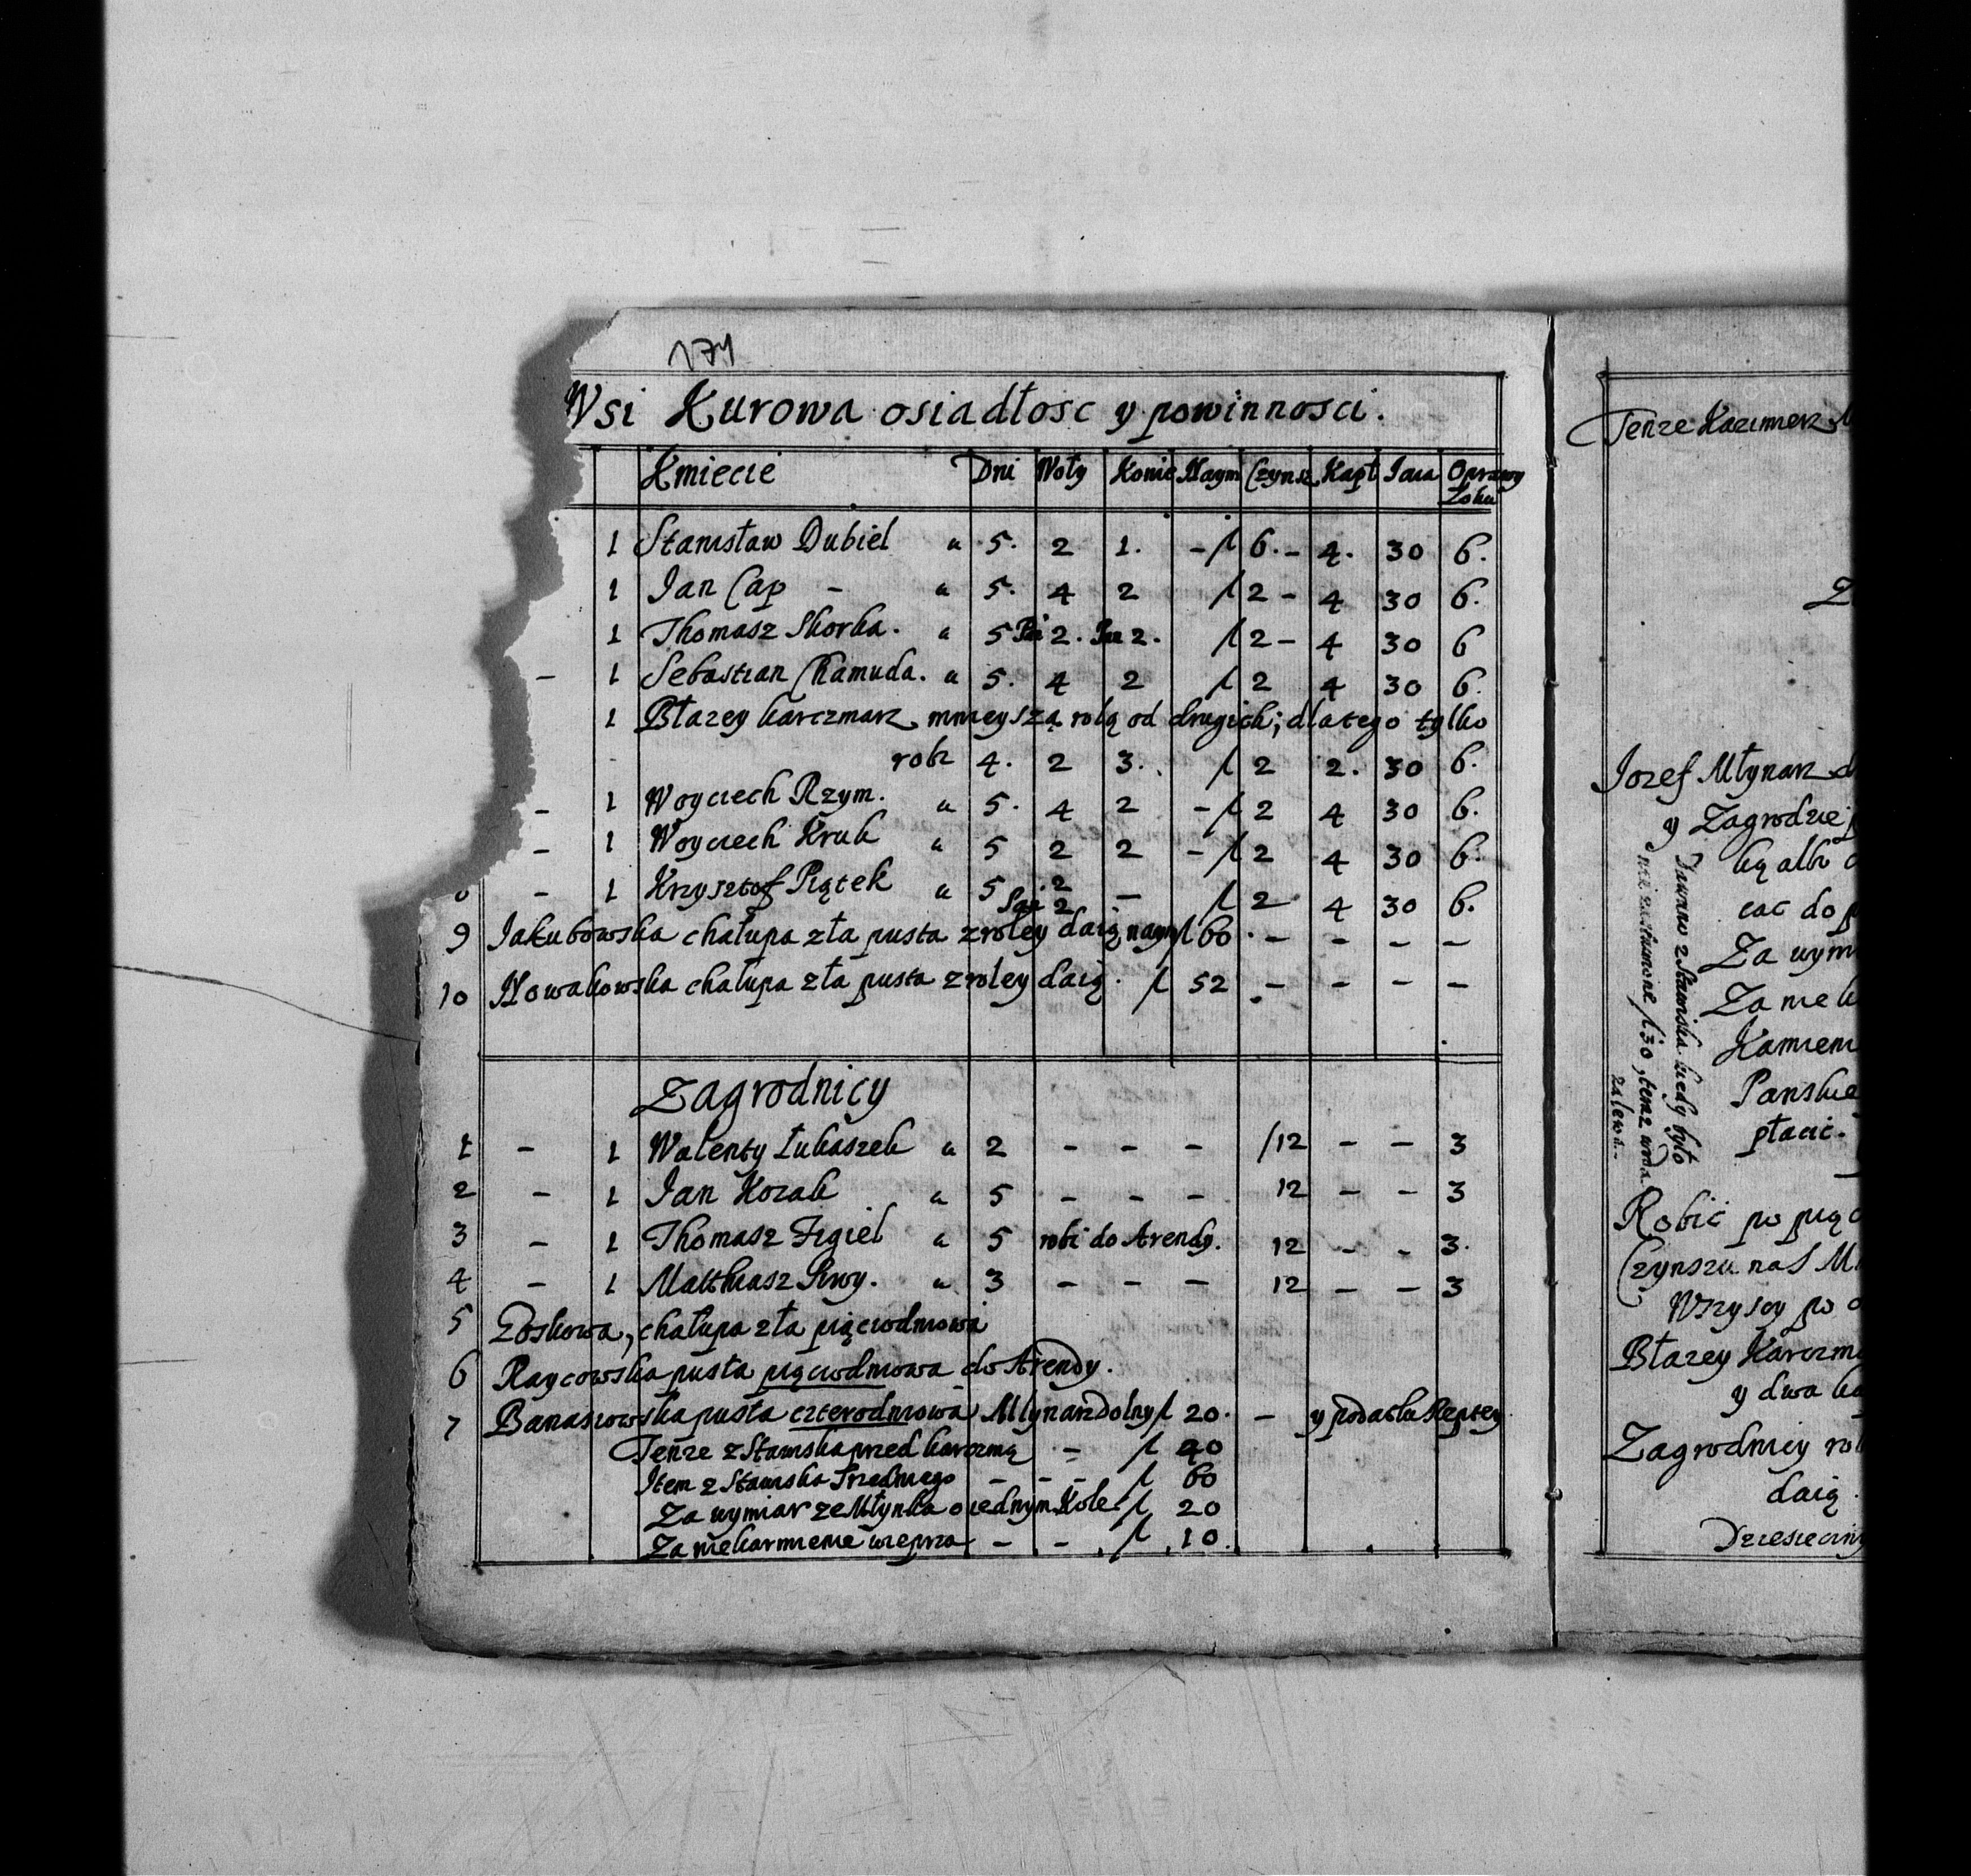 171
Wsi Kurowa osiadłosc y powinnosci.
Kmiecie Dni Woły Konie Naym Czynsz Kapł Iaia Oprawy Łoku
1 Stanisław Dubiel " 5. 2 1. - f 6. - 4. 30 6.
1 Ian Cap - " 5. 4 2 f 2 - 4 30 6.
1 Thomasz Skorka. " 5 Pai 2. Pai 2. f 2 - 4 30 6
- 1 Sebastian Chamuda. " 5. 4 2 f 2 4 30 6.
1 Błazey karczmarz mnieyszą rolą od drugich; dlatego tylko
robi 4. 2 3. f 2 2. 30 6.
- 1 Woyciech Rzym. " 5. 4 2 - f 2 4 30 6.
- 1 Woyciech Kruk " 5 2 2 - f 2 4 30 6.
8 - 1 Krzysztof Piątek " 5 2 Pai 2 - f 2 4 30 6.
9 Iakubowska chałupa zła pusta z roley daią naym f 60. - - - -
10 Nowakowska chałupa zła pusta z roley daią. f 52 - - - -
Zagrodnicy
1 - 1 Walenty Łukaszek " 2 - - - f 12 - - 3
2 - 1 Ian Kozak " 5 - - - 12 - - 3
3 - 1 Thomasz Figiel " 5 robi do Arendy. 12 - - 3.
4 - 1 Matthiasz " 3 - - - 12 - - 3
5 chałupa zła pięciodniowa
6 Raycowska pusta pięciodniowa do Arendy.
7 Banasiowska pusta czterodniowa Młynarz dolny f 20. - y podatku
Tenze z Stawiska przed karczmą - f 40
Item z Stawiska Srzedniego - - - f 60
Za wymiar ze Młynka o iednym Kole f 20
Za niekarmienie wieprza - - f 10.
Tenze Kazimierz
Iozef Młynarz
y Zagrodzie
ką albo
cac do
Za wym
Za niek
Kamieni
Panskie
płacic.
Dawniey z Stawiska kiedy było
nie zastawione f 30, teraz woda
zalewa.
Robic po pięc
Czynszu na S
Wszyscy po
Błazey Karczm
y dwa
Zagrodnicy
daią
Dziesieciny